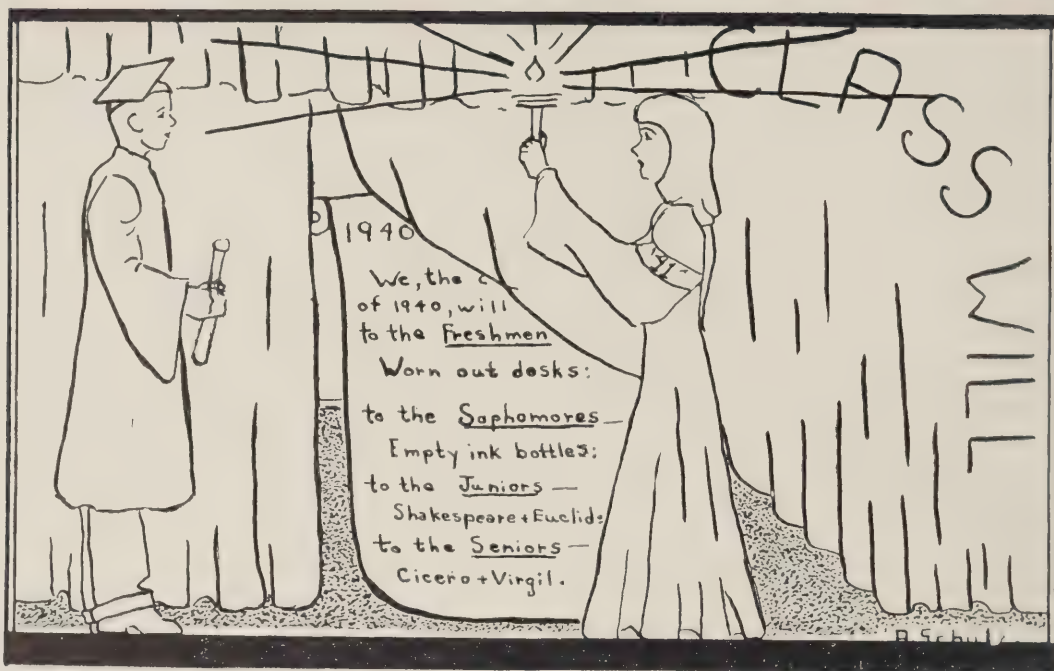 CLASS WILL
1940
We, the c
of 1940, will
to the Freshmen
Worn out desks:
to the Sophomores—
Empty ink bottles:
to the Juniors—
Shakespeare + Euclid:
to the Seniors—
Cicero + Virgil.